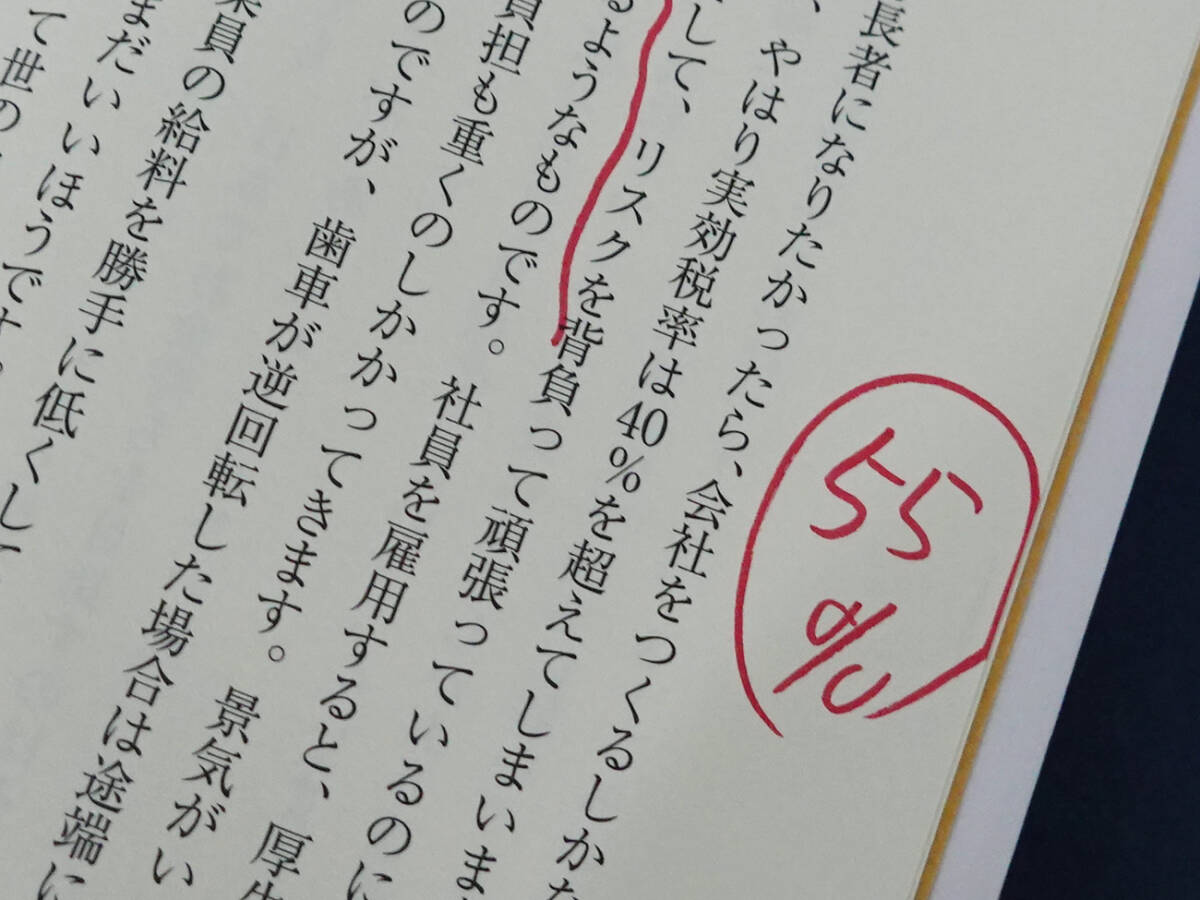 長者になりたかったら、会社をつくるしかな
、やはり実効税率は40%を超えてしまいま
して、リスクを背負って頑張っているのに
るようなものです。社員を雇用すると、厚生
負担も重くのしかかってきます。景気がい
のですが、歯車が逆回転した場合は途端に
業員の給料を勝手に低くして
まだいいほうです。
て世の
55%